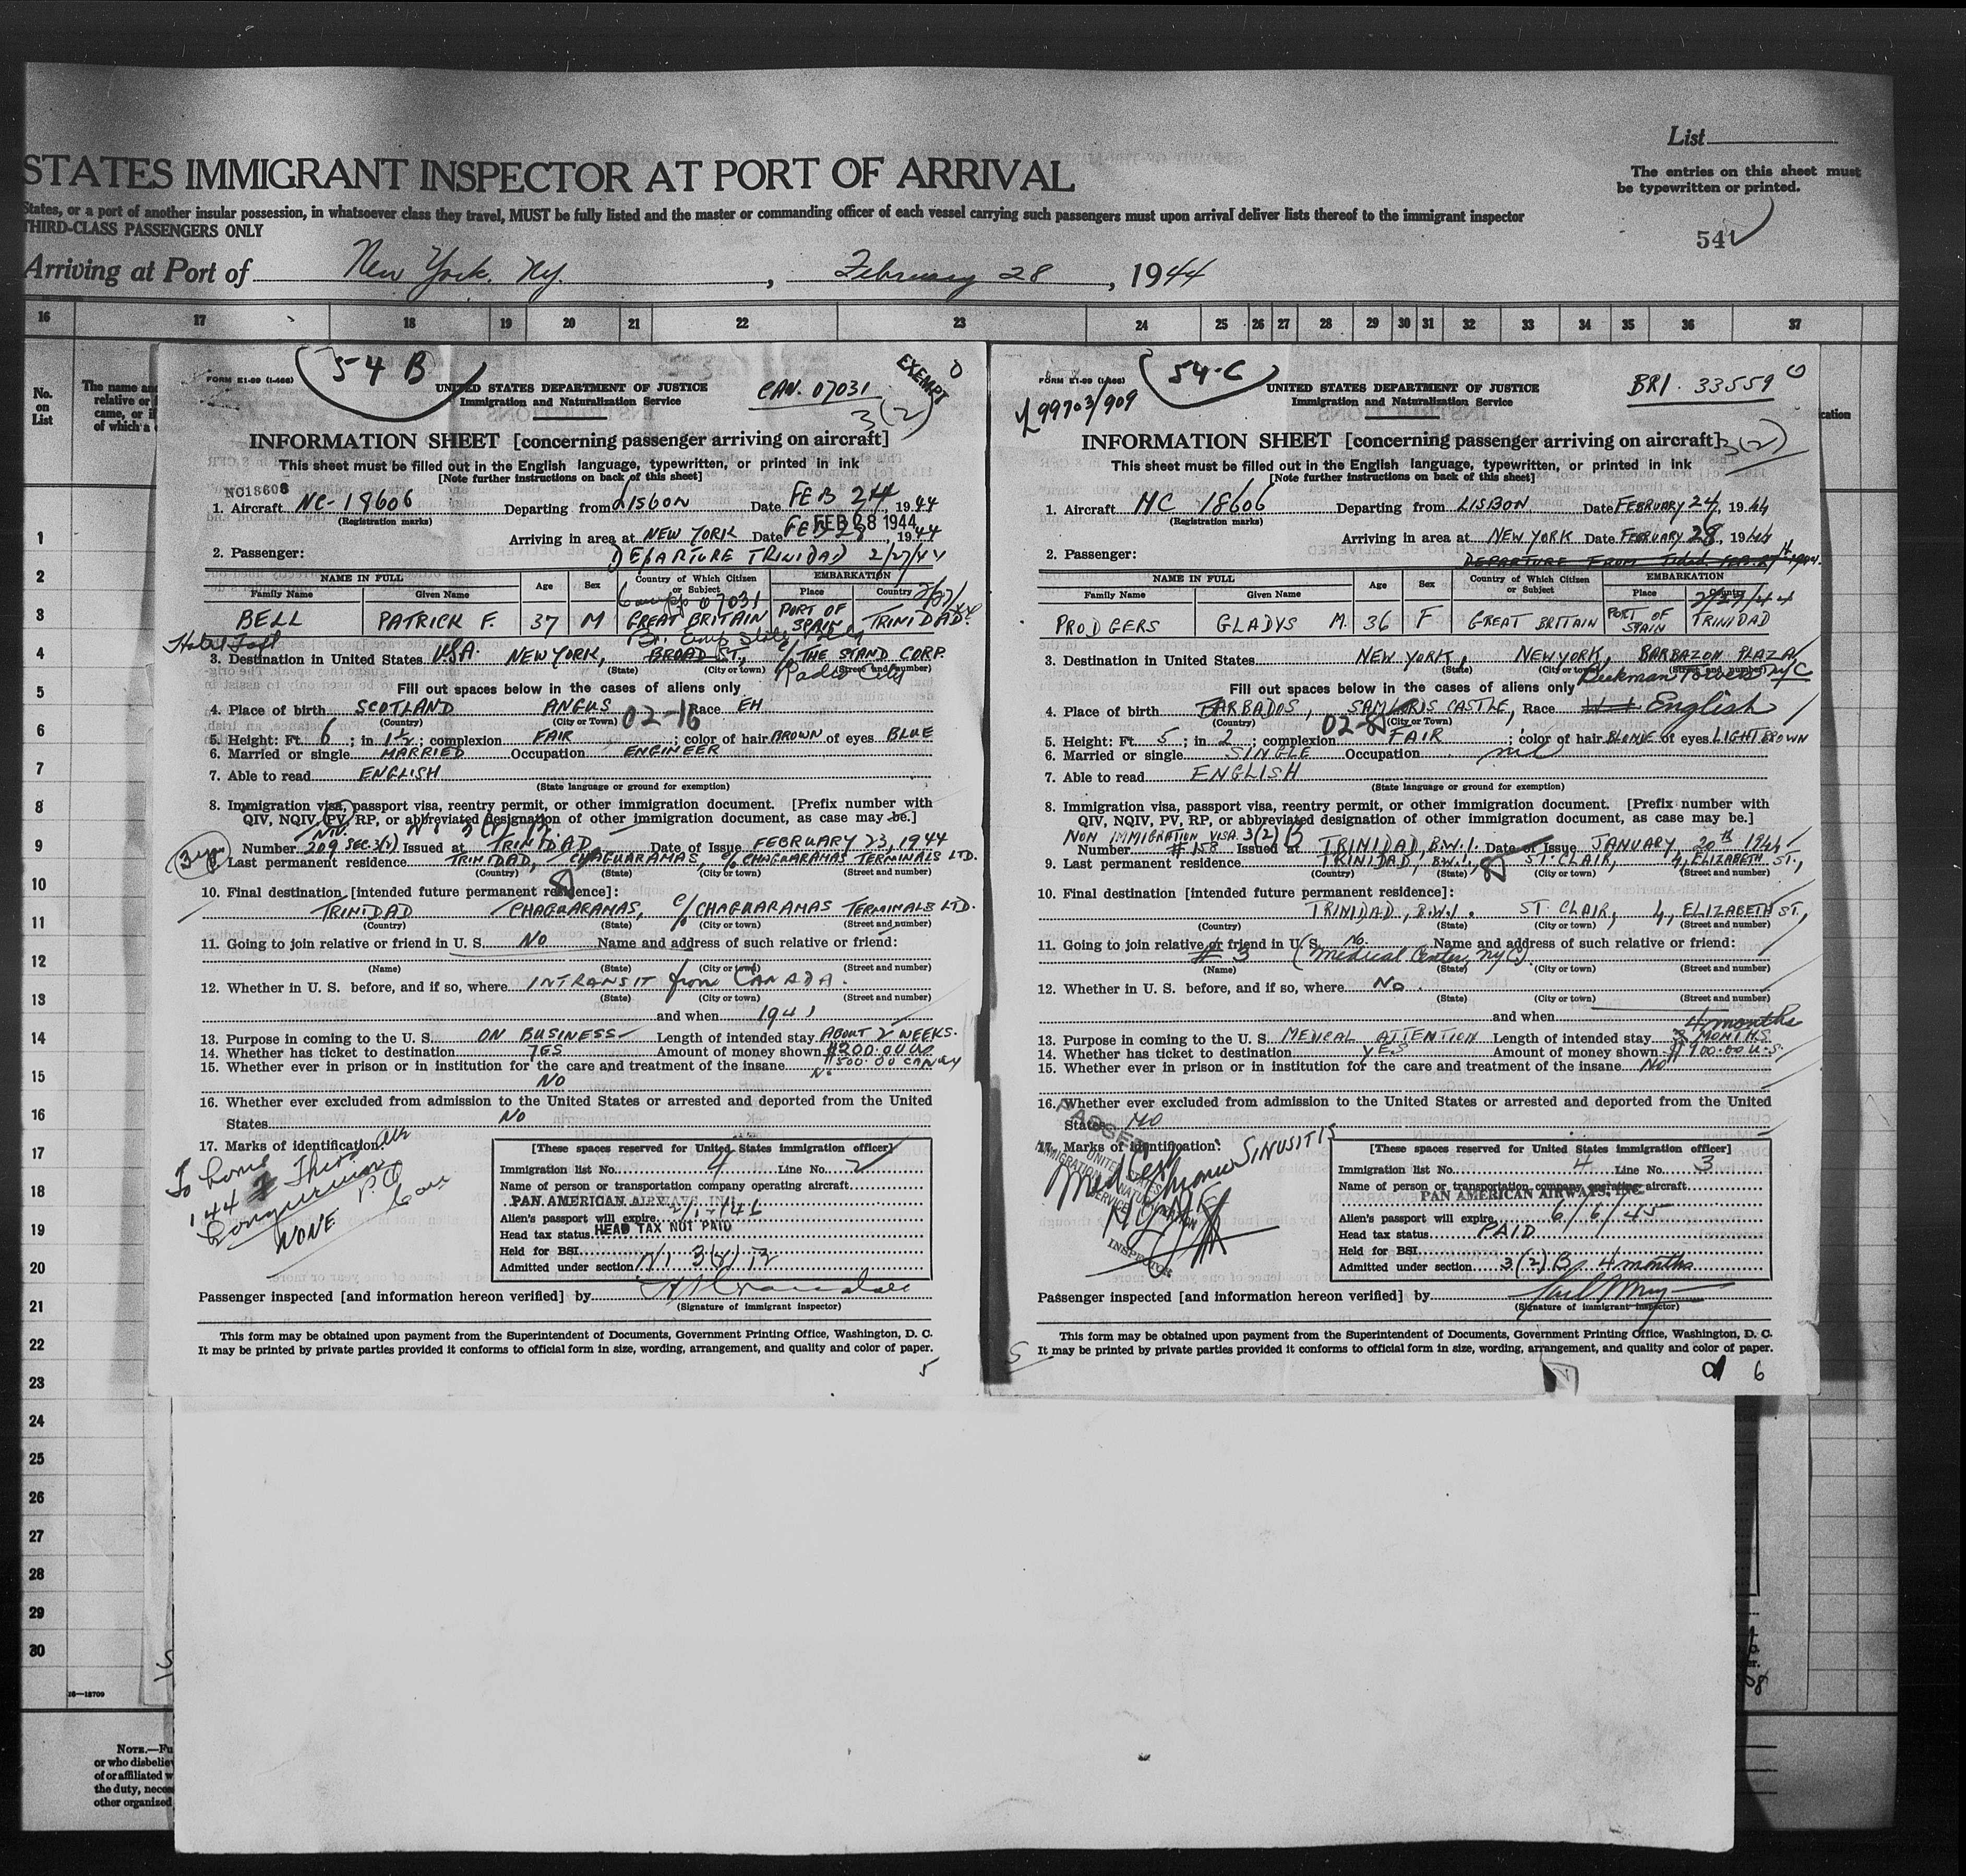 List
STATES IMMIGRANT INSPECTOR AT PORT OF ARRIVAL
The entries on this sheet must
be typewritten or printed.
States, or a port of another insular possession, in whatsoever class they travel, MUST be fully listed and the master or commanding officer of each vessel carrying such passengers must upon arrival deliver lists thereof to the immigrant inspector
THIRD-CLASS PASSENGERS ONLY
54
Arriving at Port of New York, Ny. , February 28 , 1944
16 17 18 19 20 21 22 23 24 25 26 27 28 29 30 31 32 33 34 35 36 37
No.
on
List
The name an
relative or
came, or if
of which a
1
2
3
4
5
6
7
8
9
10
11
12
13
14
15
16
17
18
19
20
21
22
23
24
25
26
27
28
29
30
16—18709
NOTE.—Fu
or who disbeliev
of or affiliated w
the duty, neces
other organized
54 B
FORM E1-99 (I-466)
UNITED STATES DEPARTMENT OF JUSTICE
Immigration and Naturalization Service
CAN. 07031
EXEMPT
3(2)
INFORMATION SHEET [concerning passenger arriving on aircraft]
This sheet must be filled out in the English language, typewritten, or printed in ink
[Note further instructions on back of this sheet]
NC18606
1. Aircraft NC-18606 Departing from LISBON Date FEB 24, 1944
(Registration marks)
FEB 28 1944
Arriving in area at NEW YORK Date FEB 28, 1944
2. Passenger: DEPARTURE TRINIDAD 2/27/44
NAME IN FULL Age Sex Country of Which Citizen or Subject EMBARKATION
Family Name Given Name Place Country
07031 2/27/44
BELL PATRICK F. 37 M GREAT BRITAIN PORT OF SPAIN TRINIDAD
Hotel Taft
3. Destination in United States U.S.A. NEW YORK, BROAD ST., c/o THE STAND CORP.
(State) (City or town) (Street and number)
Radio City
Fill out spaces below in the cases of aliens only
4. Place of birth SCOTLAND ANGUS Race EH
(Country) (City or Town)
02-16
5. Height: Ft. 6; in. 1½; complexion FAIR; color of hair BROWN of eyes BLUE
6. Married or single MARRIED Occupation ENGINEER
7. Able to read ENGLISH
(State language or ground for exemption)
8. Immigration visa, passport visa, reentry permit, or other immigration document. [Prefix number with
QIV, NQIV, PV, RP, or abbreviated designation of other immigration document, as case may be.]
Number 209 SEC. 3(2) Issued at TRINIDAD Date of Issue FEBRUARY 23, 1944
9. Last permanent residence TRINIDAD, CHAGUARAMAS, c/o CHAGUARAMAS TERMINALS LTD.
(Country) (State) (City or town) (Street and number)
10. Final destination [intended future permanent residence]:
TRINIDAD CHAGUARAMAS, c/o CHAGUARAMAS TERMINALS LTD.
(Country) (City or town) (Street and number)
11. Going to join relative or friend in U. S. NO Name and address of such relative or friend:
(Name) (State) (City or town) (Street and number)
12. Whether in U. S. before, and if so, where INTRANSIT from CANADA.
(State) (City or town) (Street and number)
and when 1941
13. Purpose in coming to the U. S. ON BUSINESS Length of intended stay ABOUT 2 WEEKS.
14. Whether has ticket to destination YES Amount of money shown $200.00 US
15. Whether ever in prison or in institution for the care and treatment of the insane
NO
16. Whether ever excluded from admission to the United
States or arrested and deported from the United States NO
17. Marks of identification:
NONE
[These spaces reserved for United States immigration officer]
Immigration list No. 4 Line No. 2
Name of person or transportation company operating aircraft
PAN AMERICAN AIRWAYS, INC.
Alien's passport will expire
Head tax status HEAD TAX NOT PAID
Held for BSI
Admitted under section 3(2) B
Passenger inspected [and information hereon verified] by
(Signature of immigrant inspector)
This form may be obtained upon payment from the Superintendent of Documents, Government Printing Office, Washington, D. C.
It may be printed by private parties provided it conforms to official form in size, wording, arrangement, and quality and color of paper.
5
54-C
FORM E1-99 (I-466)
99703/909
UNITED STATES DEPARTMENT OF JUSTICE
Immigration and Naturalization Service
BRI. 33559
INFORMATION SHEET [concerning passenger arriving on aircraft]
3(2)
This sheet must be filled out in the English language, typewritten, or printed in ink
[Note further instructions on back of this sheet]
1. Aircraft NC 18606 Departing from LISBON Date FEBRUARY 24, 1944
(Registration marks)
Arriving in area at NEW YORK Date FEBRUARY 28, 1944
2. Passenger:
NAME IN FULL Age Sex Country of Which Citizen or Subject EMBARKATION
Family Name Given Name Place Country
2/27/44
PRODGERS GLADYS M. 36 F GREAT BRITAIN PORT OF SPAIN TRINIDAD
3. Destination in United States NEW YORK, NEW YORK, BARBAZON PLAZA
(State) (City or town) (Street and number)
Beekman Towers NYC
Fill out spaces below in the cases of aliens only
4. Place of birth BARBADOS, SAM LORDS CASTLE, Race English
(Country) (City or Town)
5. Height: Ft. 5; in. 2; complexion FAIR; color of hair BLONDE of eyes LIGHT BROWN
6. Married or single SINGLE Occupation nil
7. Able to read ENGLISH
(State language or ground for exemption)
8. Immigration visa, passport visa, reentry permit, or other immigration document. [Prefix number with
QIV, NQIV, PV, RP, or abbreviated designation of other immigration document, as case may be.]
NON IMMIGRATION VISA 3(2) B
Number #158 Issued at TRINIDAD, B.W.I. Date of Issue JANUARY, 20th 1944
9. Last permanent residence TRINIDAD, B.W.I., ST. CLAIR, 4, ELIZABETH ST.,
(Country) (State) (City or town) (Street and number)
10. Final destination [intended future permanent residence]:
TRINIDAD, B.W.I. ST. CLAIR, 4, ELIZABETH ST.,
(Country) (City or town) (Street and number)
11. Going to join relative or friend in U. S. No. Name and address of such relative or friend:
#3 (Medical Center, NYC)
(Name) (State) (City or town) (Street and number)
12. Whether in U. S. before, and if so, where No.
(State) (City or town) (Street and number)
and when
4 months
13. Purpose in coming to the U. S. MEDICAL ATTENTION Length of intended stay MONTHS.
14. Whether has ticket to destination YES Amount of money shown $900.00 U.S.
15. Whether ever in prison or in institution for the care and treatment of the insane NO
16. Whether ever excluded from admission to the United States or arrested and deported from the United
States NO
17. Marks of identification:
SINUSITIS
[These spaces reserved for United States immigration officer]
Immigration list No. 4 Line No. 3
Name of person or transportation company operating aircraft
PAN AMERICAN AIRWAYS, INC.
Alien's passport will expire 6/6/45
Head tax status PAID
Held for BSI
Admitted under section 3(2) B 4 months
Passenger inspected [and information hereon verified] by
(Signature of immigrant inspector)
This form may be obtained upon payment from the Superintendent of Documents, Government Printing Office, Washington, D. C.
It may be printed by private parties provided it conforms to official form in size, wording, arrangement, and quality and color of paper.
6